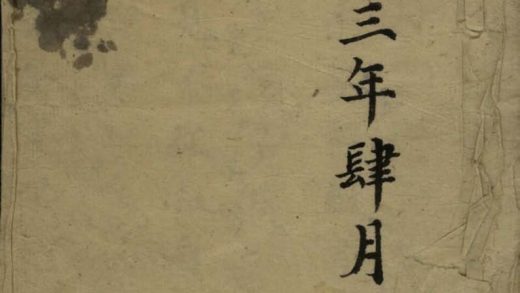 三年肆月